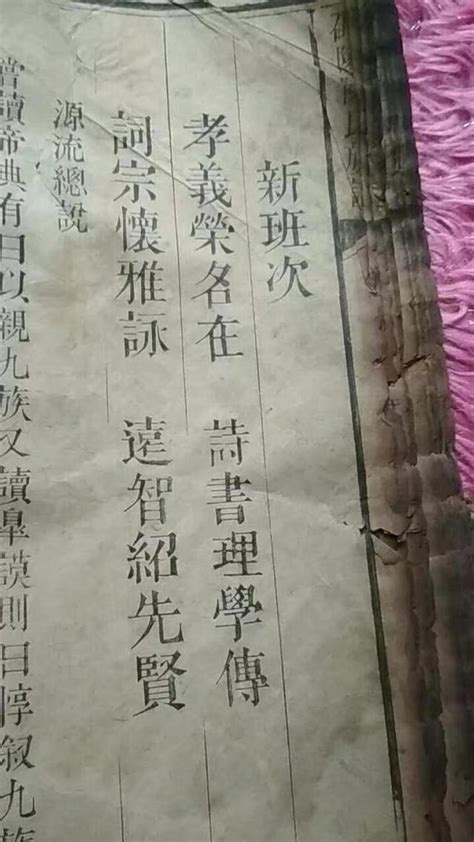 新班次
孝義榮名在 詩書理學傳
詞宗懷雅詠 遠智紹先賢
源流總說
嘗讀帝典有曰以親九族又讀皐謨則曰惇叙九族